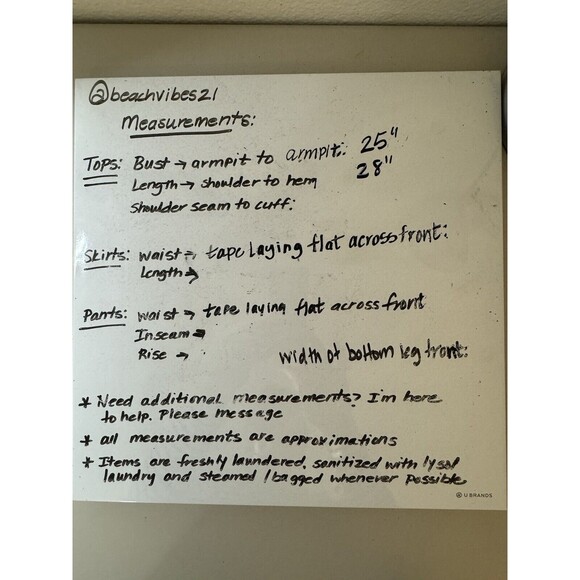 @beachvibes21
Measurements:
Tops: Bust → armpit to armpit: 25"
Length → shoulder to hem 28"
Shoulder seam to cuff:
Skirts: waist → tape laying flat across front:
Length →
Pants: waist → tape laying flat across front
Inseam →
Rise → width of bottom leg front:
* Need additional measurements? I'm here
to help. Please message
* all measurements are approximations
* Items are freshly laundered, sanitized with lysol
laundry and steamed / bagged whenever possible
U BRANDS